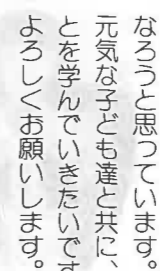 なろうと思っています。
元気な子ども達と共に、
とを学んでいきたいです
よろしくお願いします。